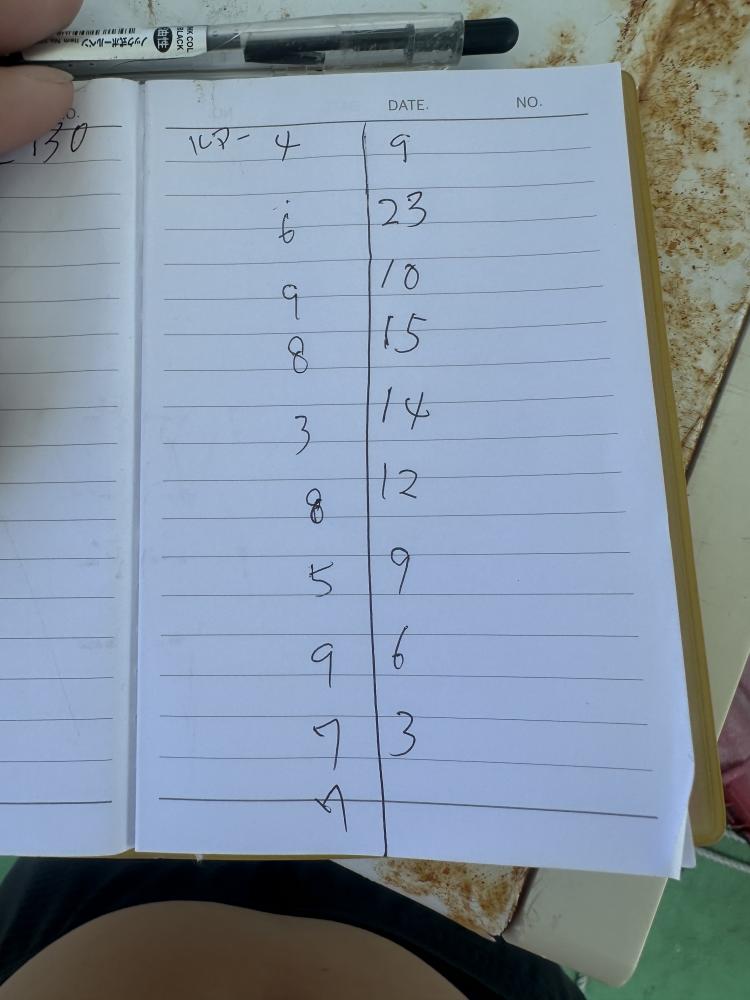 ノック式ボールペン
油性
INK COL
BLACK
130
DATE. NO.
ルアー 4 9
6 23
9 10
8 15
3 14
8 12
5 9
9 6
7 3
7